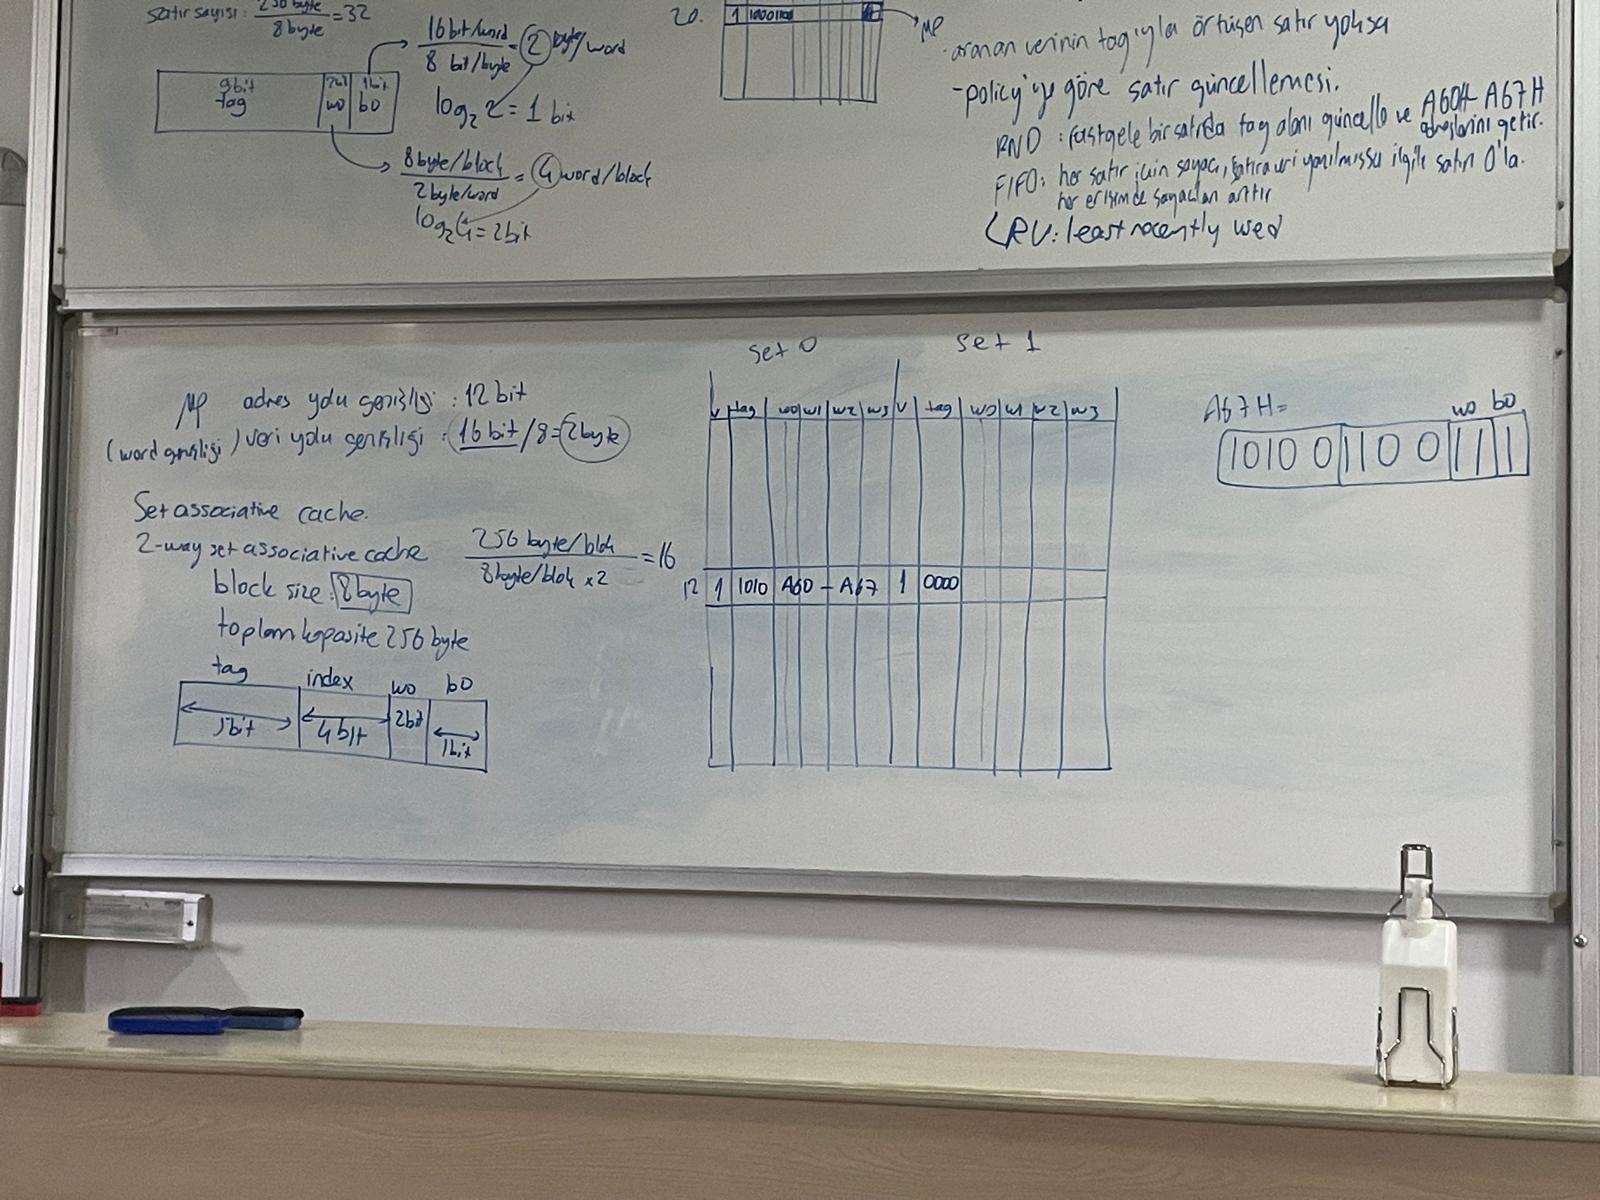 satır sayısı: 256 byte / 8 byte = 32
9bit tag | 2bit wo | 1bit bo
16bit/word / 8 bit/byte = 2 byte/word
log₂ 2 = 1 bit
8byte/block / 2byte/word = 4 word/block
log₂4 = 2bit
20. 1
MP
aranan verinin tag'ıyla örtüşen satır yoksa
-policy'ye göre satır güncellemesi.
RND : rastgele bir satırda tag alanı güncelle ve A60H-A67H adreslerini getir.
FIFO: her satır için sayaç, satıra veri yazılmışsa ilgili satırı 0'la.
her erişimde sayaçları arttır
LRU: least recently used
MP adres yolu genişliği : 12 bit
(word genişliği) veri yolu genişliği : 16 bit/8 = 2byte
Set associative cache.
2-way set associative cache
256 byte/blok / 8byte/blok x2 = 16
block size: 8byte
toplam kapasite 256 byte
tag index wo bo
5bit 4bit 2bit 1bit
set 0 set 1
V tag w0 w1 w2 w3 V tag w0 w1 w2 w3
12 1 1010 A60 - A67 1 0000
A67H=
wo bo
10100 1100 11 1